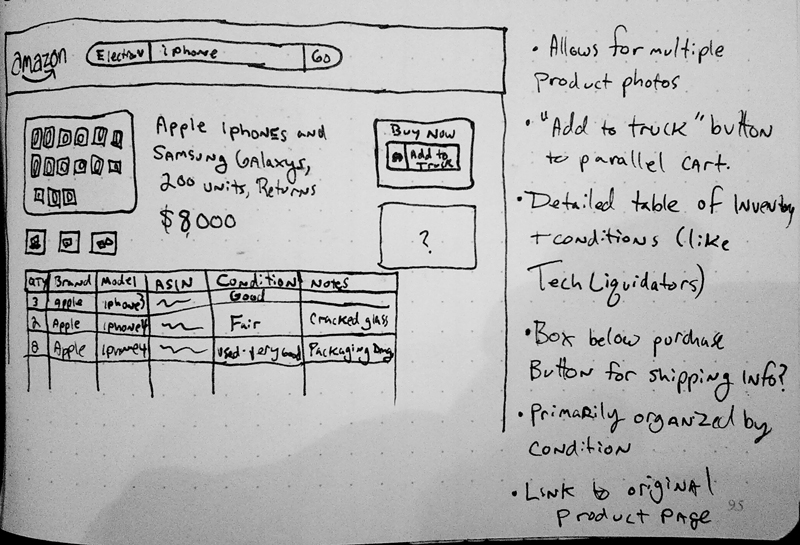 amazon
Electro iphone Go
Apple iphones and
Samsung Galaxys,
200 units, Returns
$8000
Buy Now
Add to
Truck
?
QTY Brand Model ASIN Condition Notes
3 Apple iphone3 Good
2 Apple iphone4 Fair Cracked glass
8 Apple iphone4 used-very Good Packaging Dmg
• Allows for multiple
product photos
• "Add to truck" button
to parallel cart.
• Detailed table of Inventory
+ conditions (like
Tech Liquidators)
• Box below purchase
Button for shipping info?
• Primarily organized by
condition
• Link to original
product page
95